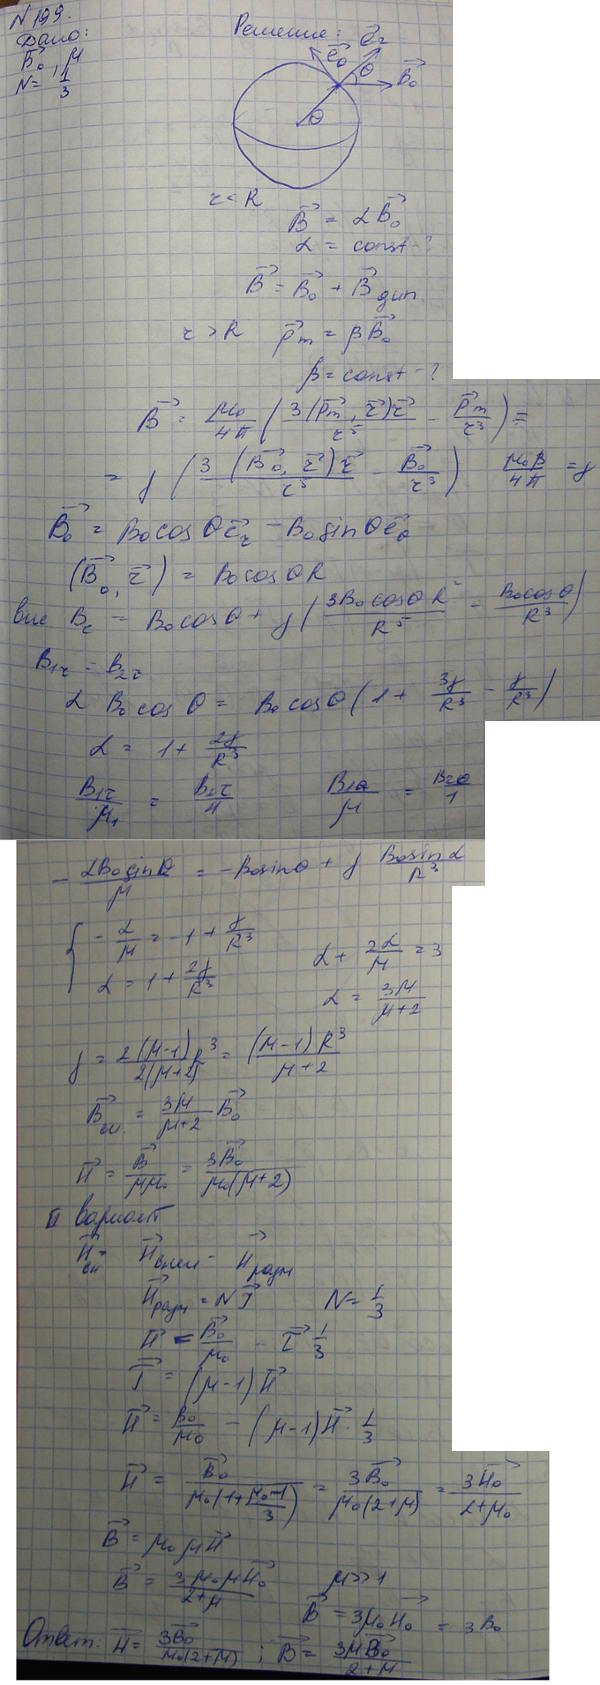 N 199.
Дано: Решение:
B⃗₀, μ
N = 1/3
e⃗_θ e⃗_r θ B⃗₀
θ
r < R
B⃗ = αB⃗₀
α = const - ?
B⃗ = B⃗₀ + B⃗дип
r > R p⃗m = βB⃗₀
β = const - ?
B⃗ = μ₀/4π (3(p⃗m, r⃗)r⃗/r⁵ - p⃗m/r³) =
= γ (3(B⃗₀, r⃗)r⃗/r⁵ - B⃗₀/r³) μ₀β/4π = γ
B⃗₀ = B₀cosθe⃗r - B₀sinθe⃗θ
(B⃗₀, r⃗) = B₀cosθR
вне Br = B₀cosθ + γ(3B₀cosθR²/R⁵ - B₀cosθ/R³)
B₁r = B₂r
αB₀cosθ = B₀cosθ(1 + 3γ/R³ - γ/R³)
α = 1 + 2γ/R³
B₁τ/μ₁ = B₂τ/μ B₁θ/μ = B₂θ/1
- αB₀sinθ/μ = -B₀sinθ + γ B₀sinα/R³
{ -α/μ = -1 + γ/R³
α = 1 + 2γ/R³
α + 2α/μ = 3
α = 3μ/(μ+2)
γ = 2(μ-1)R³/2(μ+2) = (μ-1)R³/(μ+2)
B⃗вн = 3μ/(μ+2) B⃗₀
H⃗ = B⃗/μμ₀ = 3B⃗₀/μ₀(μ+2)
II вариант
H⃗вн = H⃗внеш - H⃗разм
H⃗разм = NJ⃗ N = 1/3
H⃗ = B⃗₀/μ₀ - J⃗ 1/3
J⃗ = (μ-1)H⃗
H⃗ = B⃗₀/μ₀ - (μ-1)H⃗ · 1/3
H⃗ = B⃗₀/μ₀(1+(μ₀-1)/3) = 3B⃗₀/μ₀(2+μ) = 3H⃗₀/(2+μ₀)
B⃗ = μ₀μH⃗
B⃗ = 3μ₀μH⃗₀/(2+μ) μ>>1
B⃗ = 3μ₀H⃗₀ = 3B₀
Ответ: H⃗ = 3B⃗₀/μ₀(2+μ) ; B⃗ = 3μB⃗₀/(2+μ)